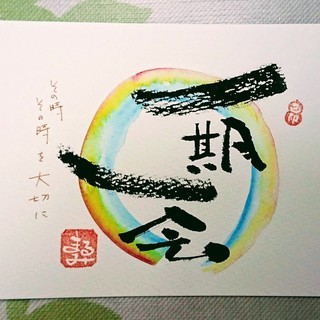 一期一会
その時
その時を大切に